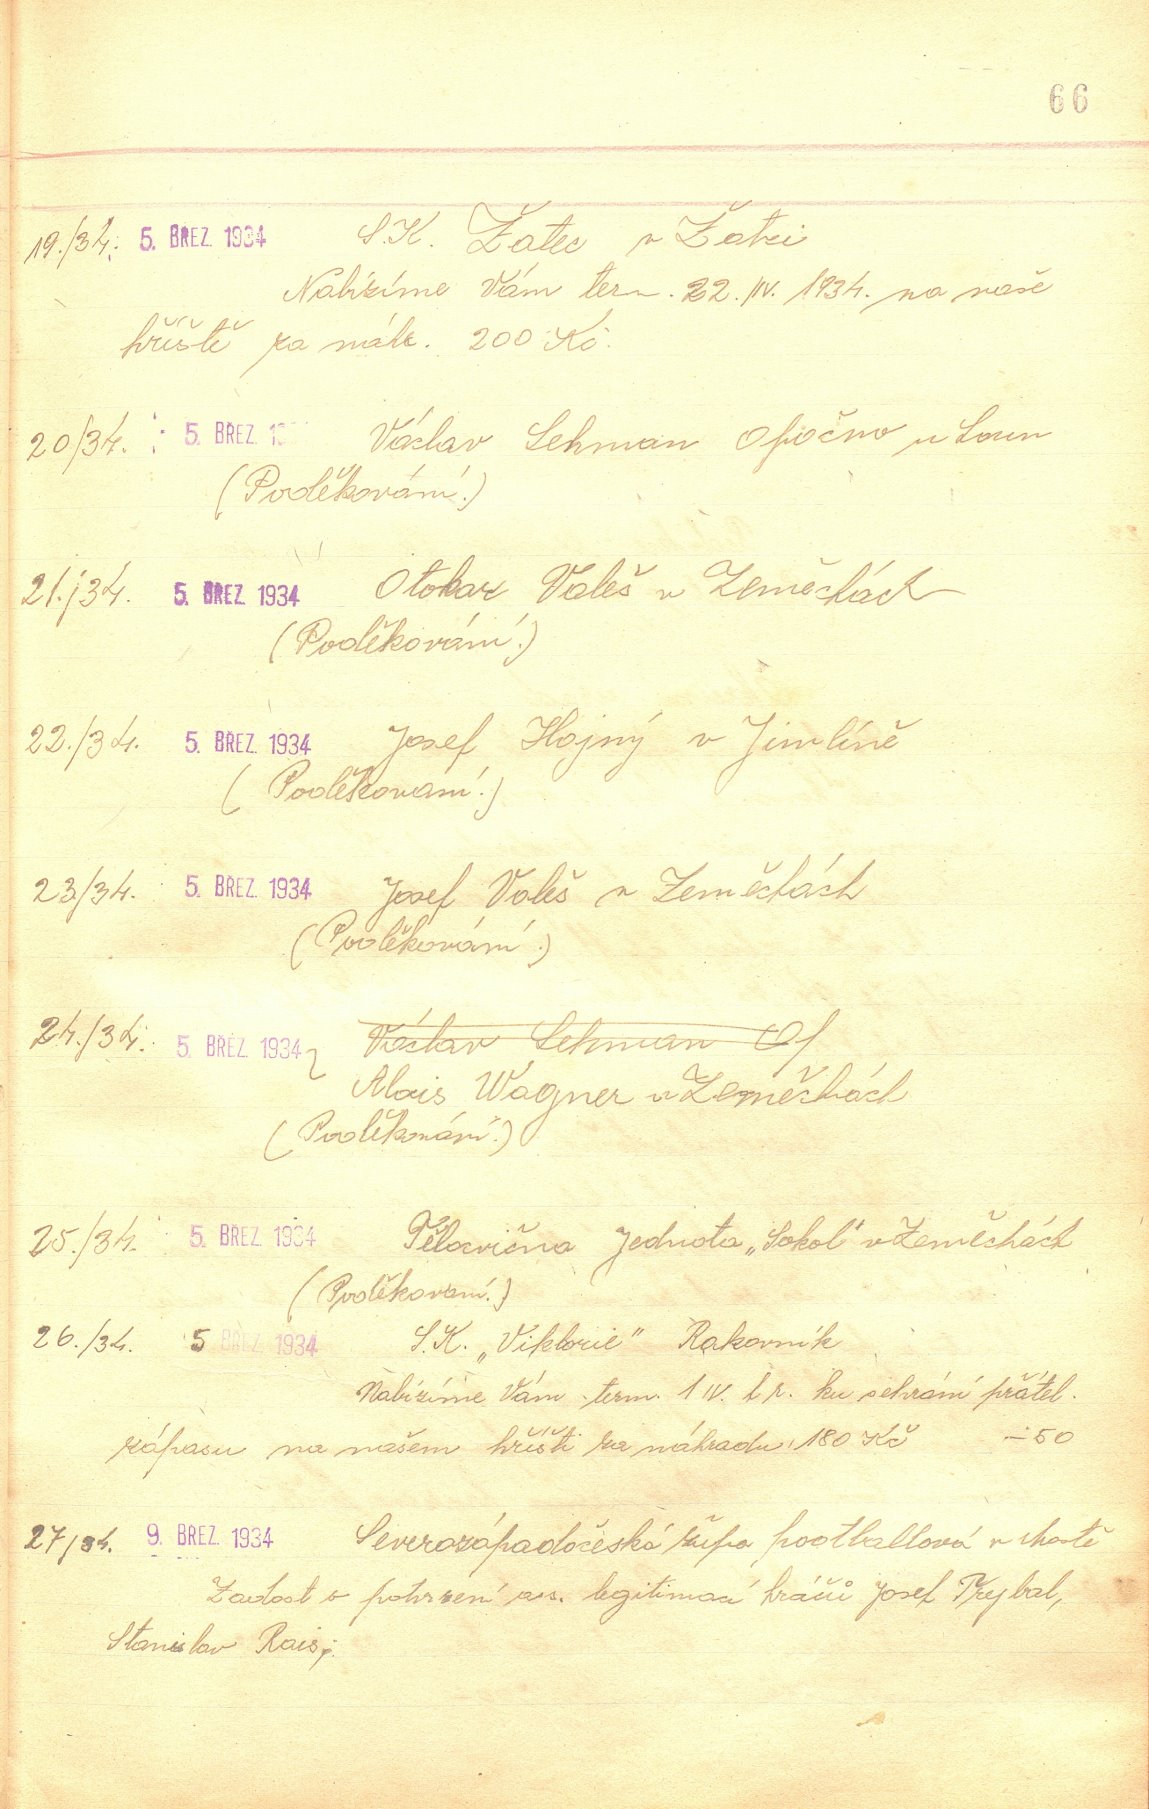 66
19./34. 5. BŘEZ. 1934 S.K. Žatec v Žatci
Nabízíme Vám term. 22. IV. 1934. na naše
hřiště za náhr. 200 Kč.
20/34. 5. BŘEZ. 19 Václav Lehman Opočno u Loun
(Poděkování.)
21./34. 5. BŘEZ. 1934 Otokar Valeš v Zeměchách
(Poděkování.)
22./34. 5. BŘEZ. 1934 Josef Hojný v Jimlíně
(Poděkování.)
23/34. 5. BŘEZ. 1934 Josef Valeš v Zeměchách
(Poděkování.)
24./34. 5. BŘEZ. 1934 Václav Lehman Op
Alois Wagner v Zeměchách
(Poděkování.)
25./34. 5. BŘEZ. 1934 Tělocvična Jednota „Sokol“ v Zeměchách
(Poděkování.)
26./34. 5 BŘEZ. 1934 S.K. „Viktorie“ Rakovník
Nabízíme Vám term. 1 IV. t. r. ku sehrání přátel.
zápasu na našem hřišti za náhradu 180 Kč –50
27/34. 9. BŘEZ. 1934 Severozápadočeská župa footballová v Mostě
Žádost o potvrzení legitimací hráčů Josef Přybal,
Stanislav Rais,